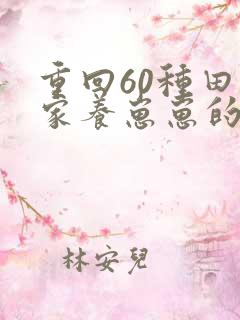 重回60種田
家養崽崽的
林安兒